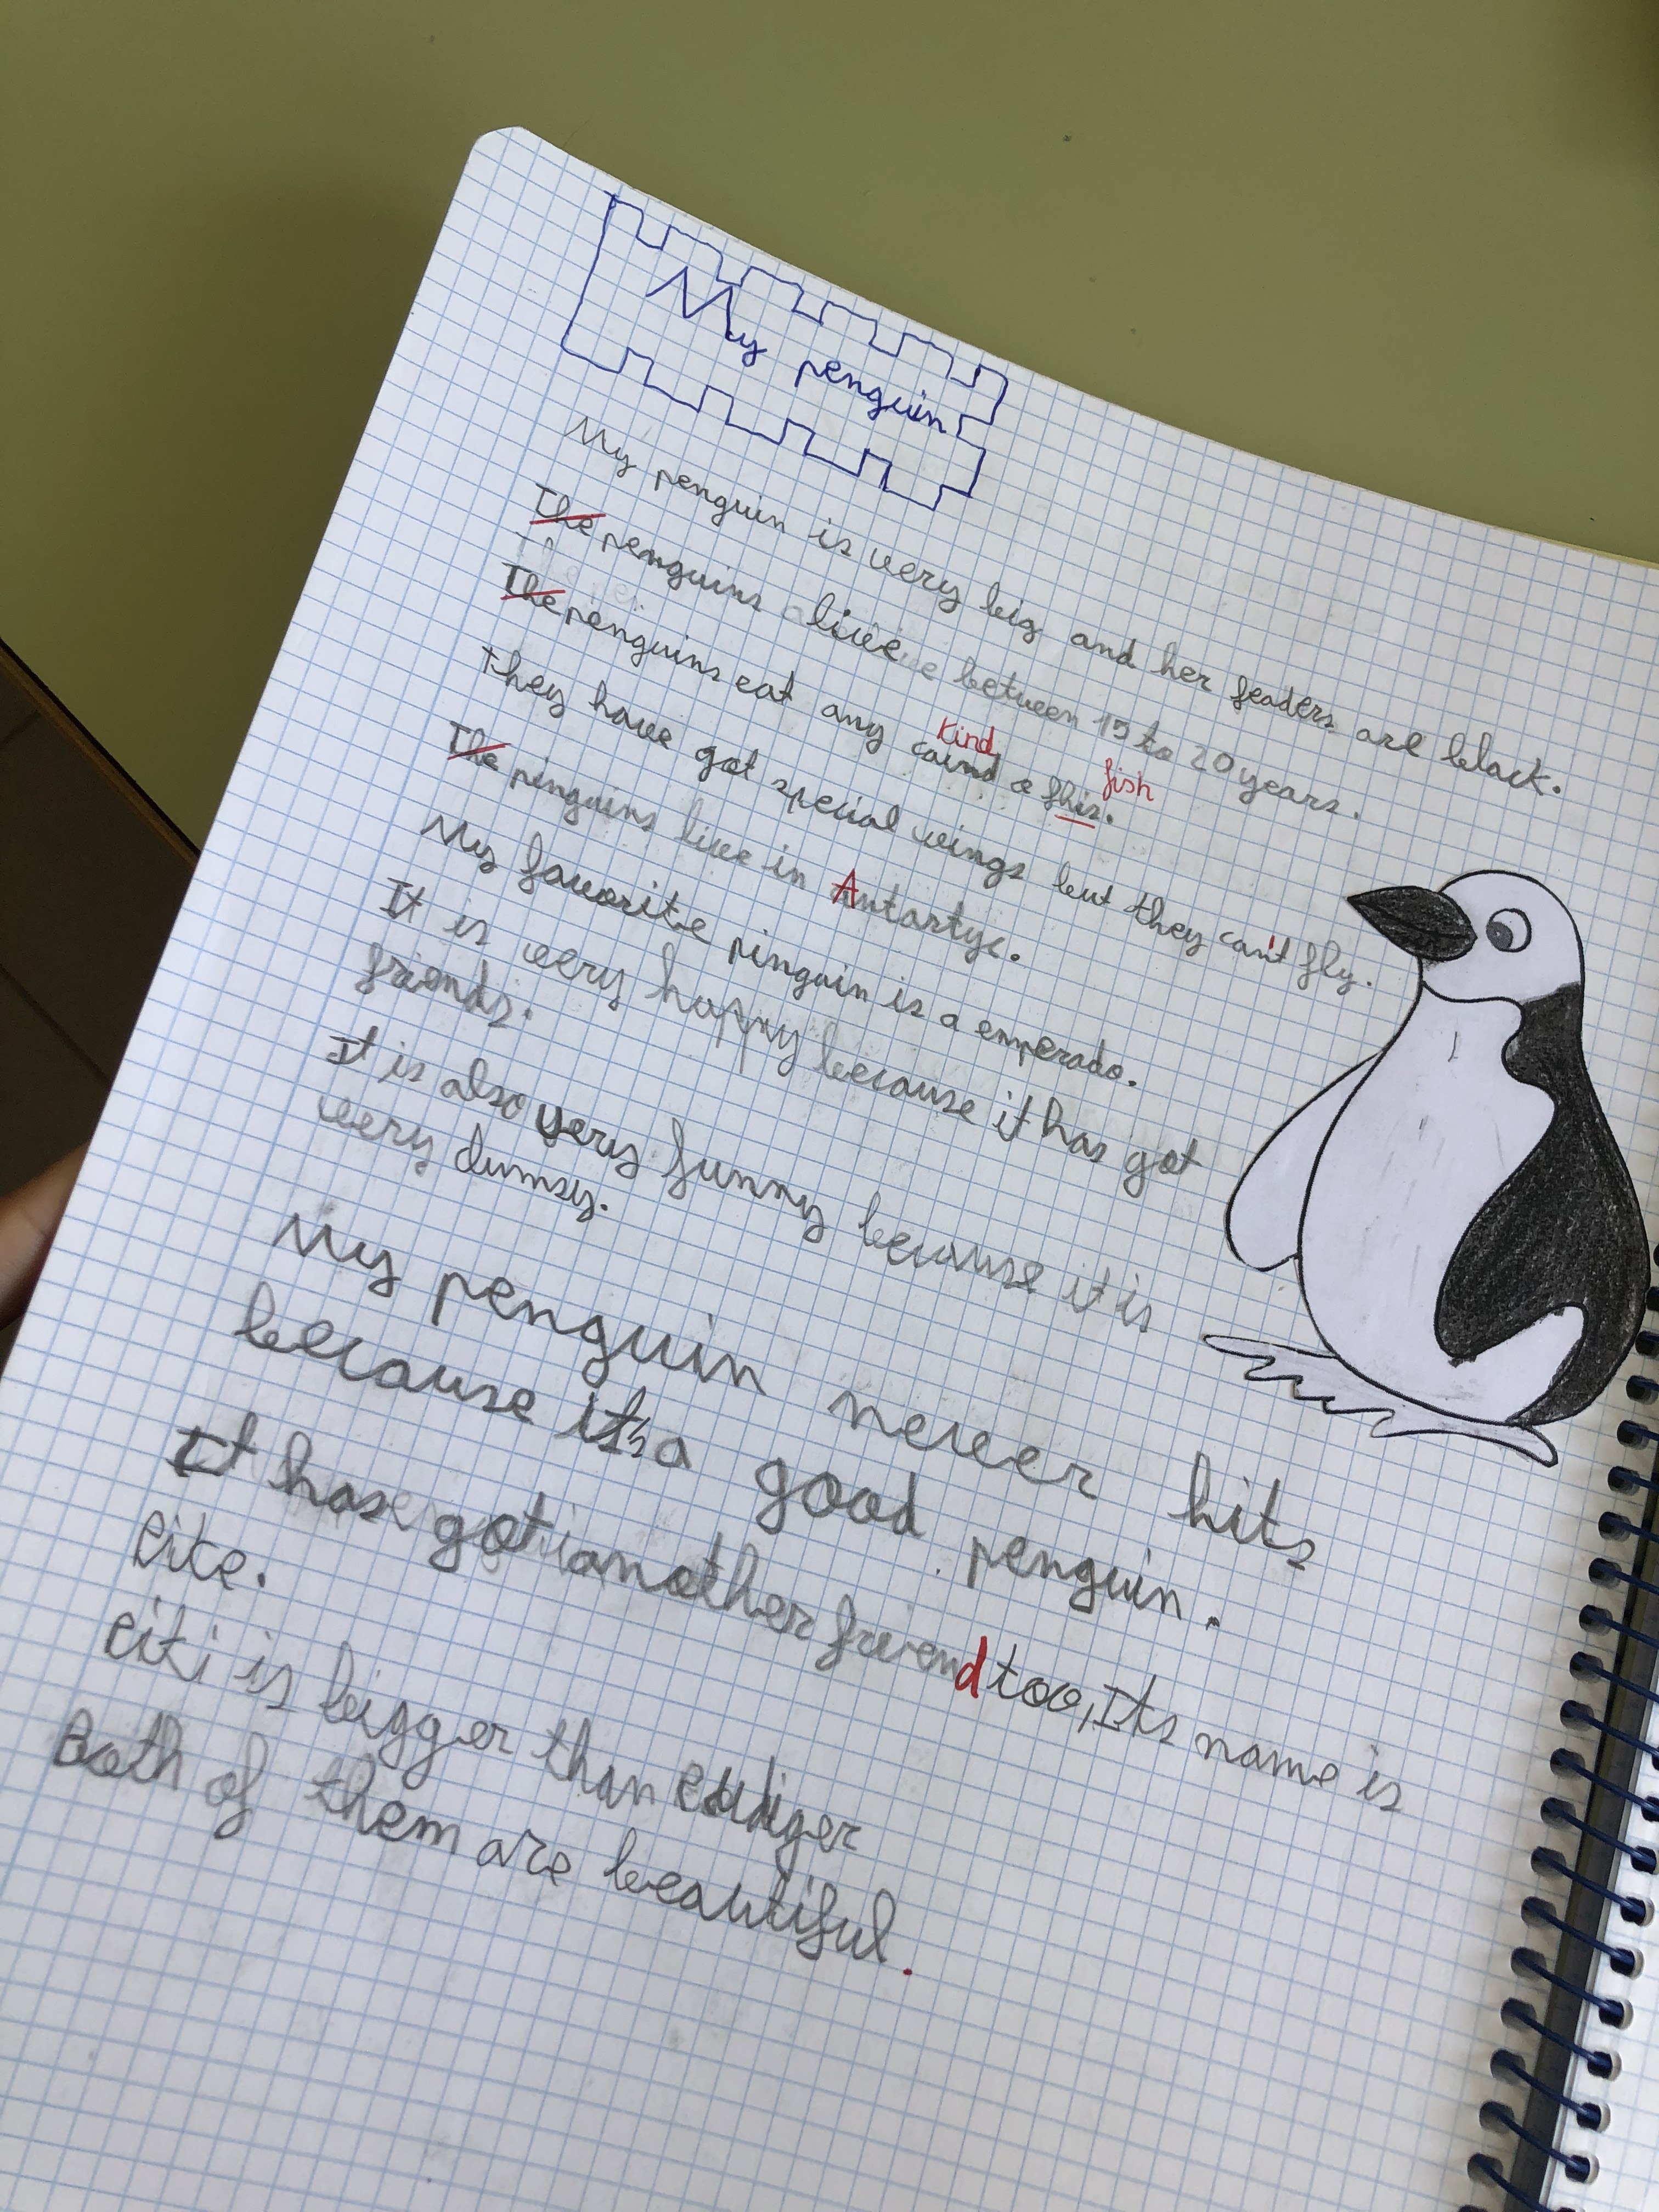 My penguin
My penguin is very big and her feaders are black.
The penguins live between 15 to 20 years.
The penguins eat any caind o fhis.
Kind
fish
They have got special wings but they can't fly.
The pinguins live in Antartyc.
My favorite pinguin is a emperado.
It is very happy because it has got
friends.
It is also very funny because it is
very dumsy.
My penguin never hits
because it's a good penguin.
It has got another friend too, Its name is
Eite.
Eiti is bigger than
Both of them are beautiful.